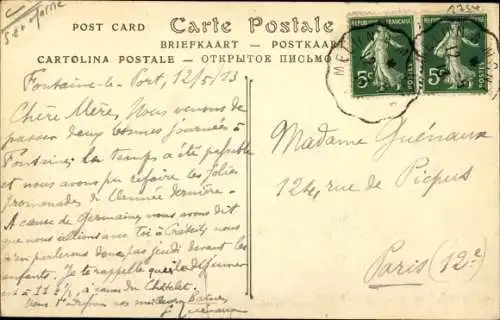 POST CARD
Carte Postale
BRIEFKAART - POSTKAART
CARTOLINA POSTALE - ОТКРЫТОЕ ПИСЬМО
RÉPUBLIQUE FRANÇAISE
5c
5c
POSTES
Fontaine-le-Port, 12/5/13
Chère Mère, Nous venons de
passer deux bonnes journées à
Fontaine; le temps a été passable
et nous avons pu refaire les jolies
promenades de l'année dernière.
A cause de Germaine nous avons dit
que nous allions avec toi à Créteil; nous
n'en parlerons donc pas jeudi devant les
enfants. Je te rappelle que le déjeuner
est à 11 h ½ à cause du Châtelet.
Nous nos meilleurs baisers
Guénaux
Madame Guénaux
124, rue de Picpus
Paris (12e)